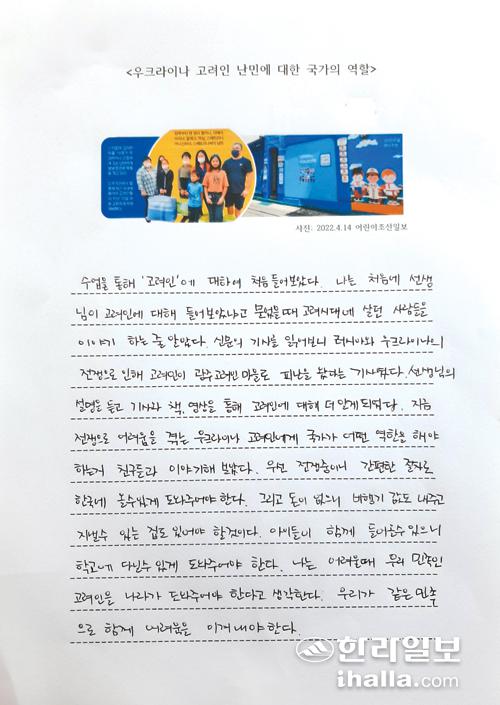 <우크라이나 고려인 난민에 대한 국가의 역할>
사진: 2022.4.14 어린이조선일보
수업을 통해 '고려인'에 대하여 처음 들어보았다. 나는 처음에 선생
님이 고려인에 대해 들어보았냐고 물었을 때 고려시대에 살던 사람들을
이야기 하는 줄 알았다. 신문의 기사를 읽어보니 러시아와 우크라이나의
전쟁으로 인해 고려인이 광주고려인 마을로 피난을 왔다는 기사였다. 선생님의
설명을 듣고 기사와 책, 영상을 통해 고려인에 대해 더 알게 되었다. 지금
전쟁으로 어려움을 겪는 우크라이나 고려인에게 국가가 어떤 역할을 해야
하는지 친구들과 이야기해 보았다. 우선 전쟁중이니 간편한 절차로
한국에 올수있게 도와주어야 한다. 그리고 돈이 없으니 비행기 값도 내주고
지낼수 있는 집도 있어야 할것이다. 아이들이 함께 들어올수 있으니
학교에 다닐수 있게 도와주어야 한다. 나는 어려울때 우리 민족인
고려인을 나라가 도와주어야 한다고 생각한다. 우리가 같은 민족
으로 함께 어려움을 이겨내야 한다.
한라일보
ihalla.com